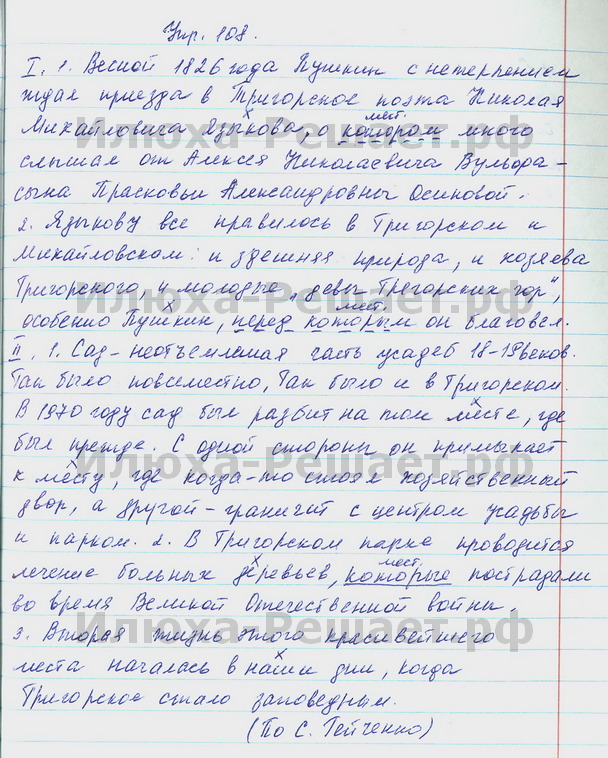 Упр. 108.
I. 1. Весной 1826 года Пушкин с нетерпением
ждал приезда в Тригорское поэта Николая
мест.
Михайловича Языкова, о котором много
слышал от Алексея Николаевича Вульфа –
сына Прасковьи Александровны Осиповой.
2. Языкову все нравилось в Тригорском и
Михайловском: и здешняя природа, и хозяева
Тригорского, и молодые „девы Тригорских гор",
мест.
особенно Пушкин, перед которым он благовел.
II. 1. Сад – неотъемлемая часть усадеб 18-19 веков.
Так было повсеместно, Так было и в Тригорском.
В 1970 году сад был разбит на том месте, где
был прежде. С одной стороны он примыкает
к месту, где когда-то стоял хозяйственный
двор, а другой – граничит с центром усадьбы
и парком. 2. В Тригорском парке проводится
мест.
лечение больных деревьев, которые пострадали
во время Великой Отечественной войны.
3. Вторая жизнь этого красивейшего
места началась в наши дни, когда
Тригорское стало заповедным.
(По С. Гейченко)
Илюха-Решает.рф
Илюха-Решает.рф
Илюха-Решает.рф
Илюха-Решает.рф